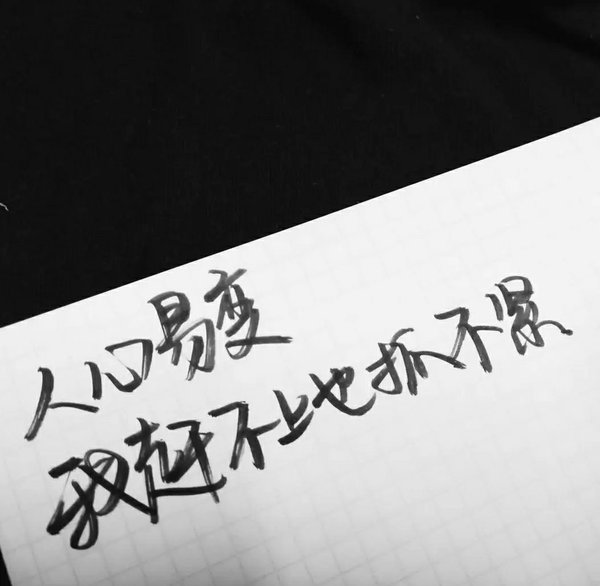 人心易变
我赶不上也抓不紧